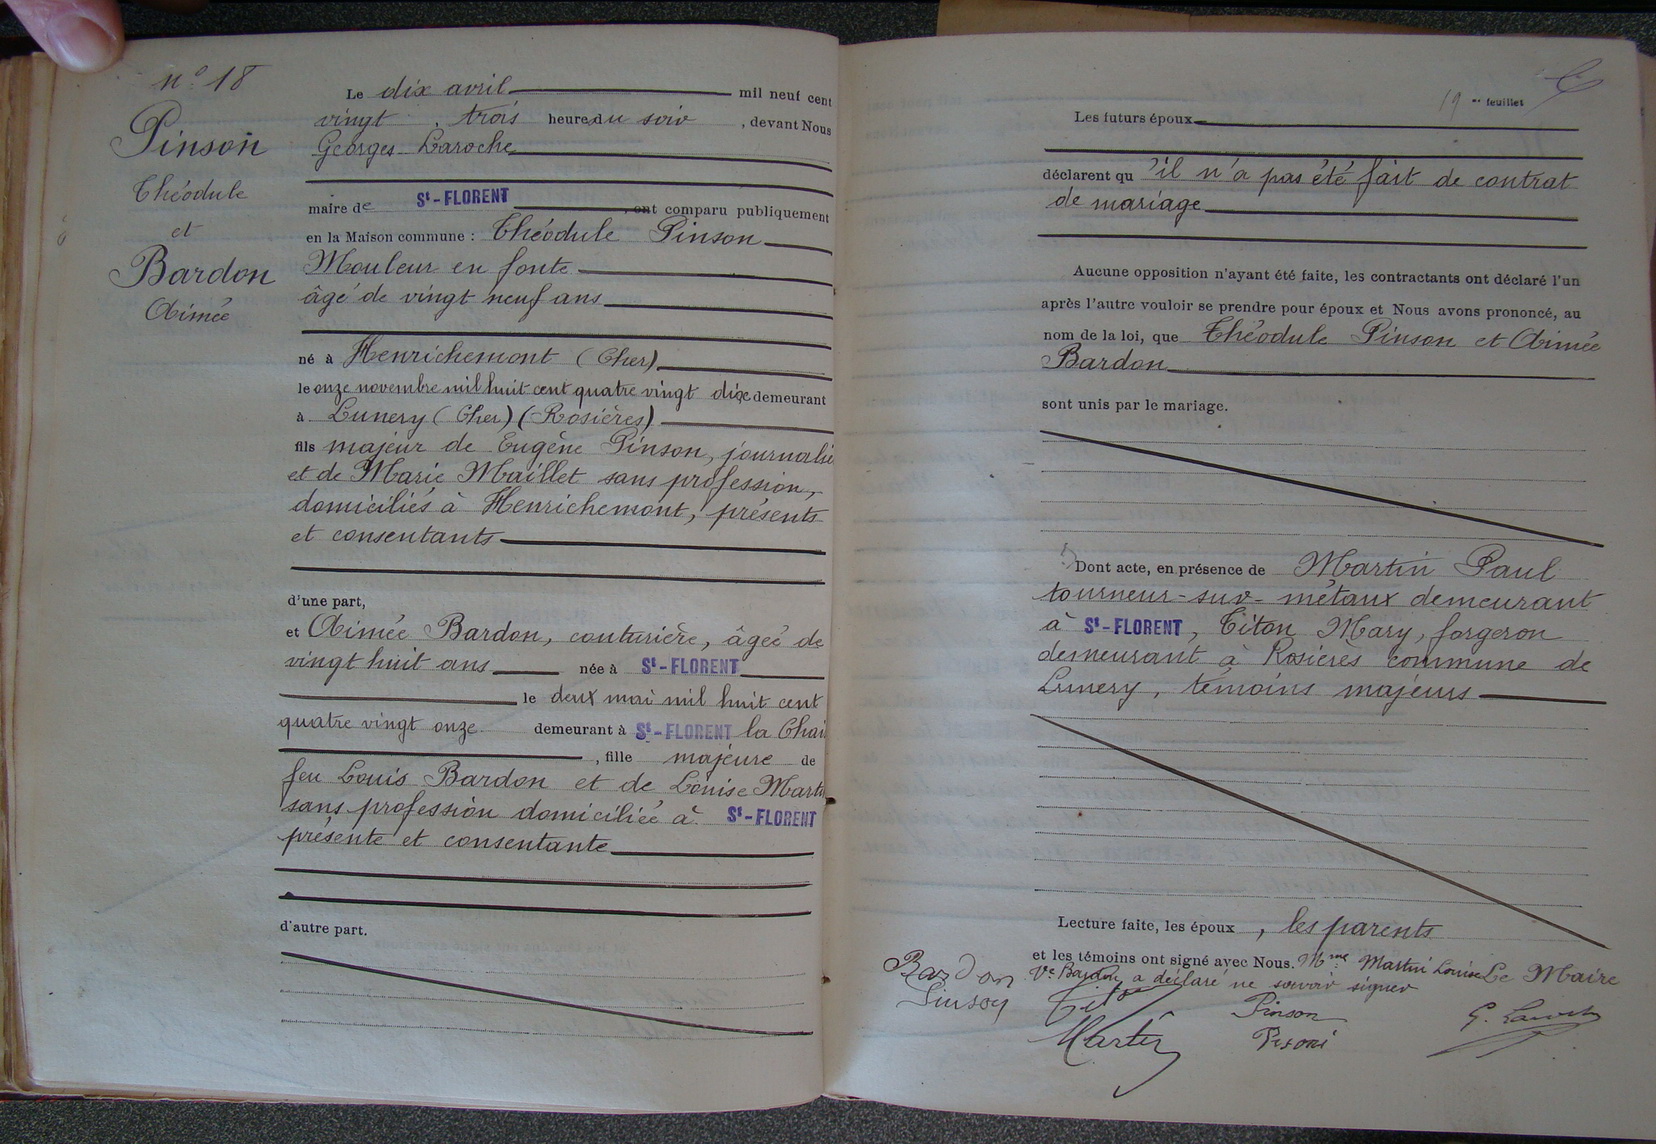 n° 18
Pinson
Théodule
et
Bardon
Aimée
Le dix avril mil neuf cent
vingt, trois heures du soir, devant Nous
Georges Laroche
maire de St-FLORENT, ont comparu publiquement
en la Maison commune : Théodule Pinson
Mouleur en fonte
âgé de vingt neuf ans
né à Henrichemont (Cher)
le onze novembre mil huit cent quatre vingt dix demeurant
à Lunery (Cher) (Rosières)
fils majeur de Eugène Pinson, journalie
et de Marie Maillet sans profession,
domiciliés à Henrichemont, présents
et consentants
d'une part,
et Aimée Bardon, couturière, âgée de
vingt huit ans née à St-FLORENT
le deux mai mil huit cent
quatre vingt onze demeurant à St-FLORENT la Chau
, fille majeure de
feu Louis Bardon et de Louise Martin
sans profession domiciliée à St-FLORENT
présente et consentante
d'autre part.
19 me feuillet
Les futurs époux
déclarent qu'il n'a pas été fait de contrat
de mariage
Aucune opposition n'ayant été faite, les contractants ont déclaré l'un
après l'autre vouloir se prendre pour époux et Nous avons prononcé, au
nom de la loi, que Théodule Pinson et Aimée
Bardon
sont unis par le mariage.
Dont acte, en présence de Martin Paul
tourneur-sur-métaux demeurant
à St-FLORENT, Titon Mary, forgeron
demeurant à Rosières commune de
Lunery, témoins majeurs
Lecture faite, les époux, les parents
et les témoins ont signé avec Nous. Mme Martin Louise Le Maire
Ve Bardon a déclaré ne savoir signer
Bardon
Pinson
Titon
Martin
Pinson
G. Laroche